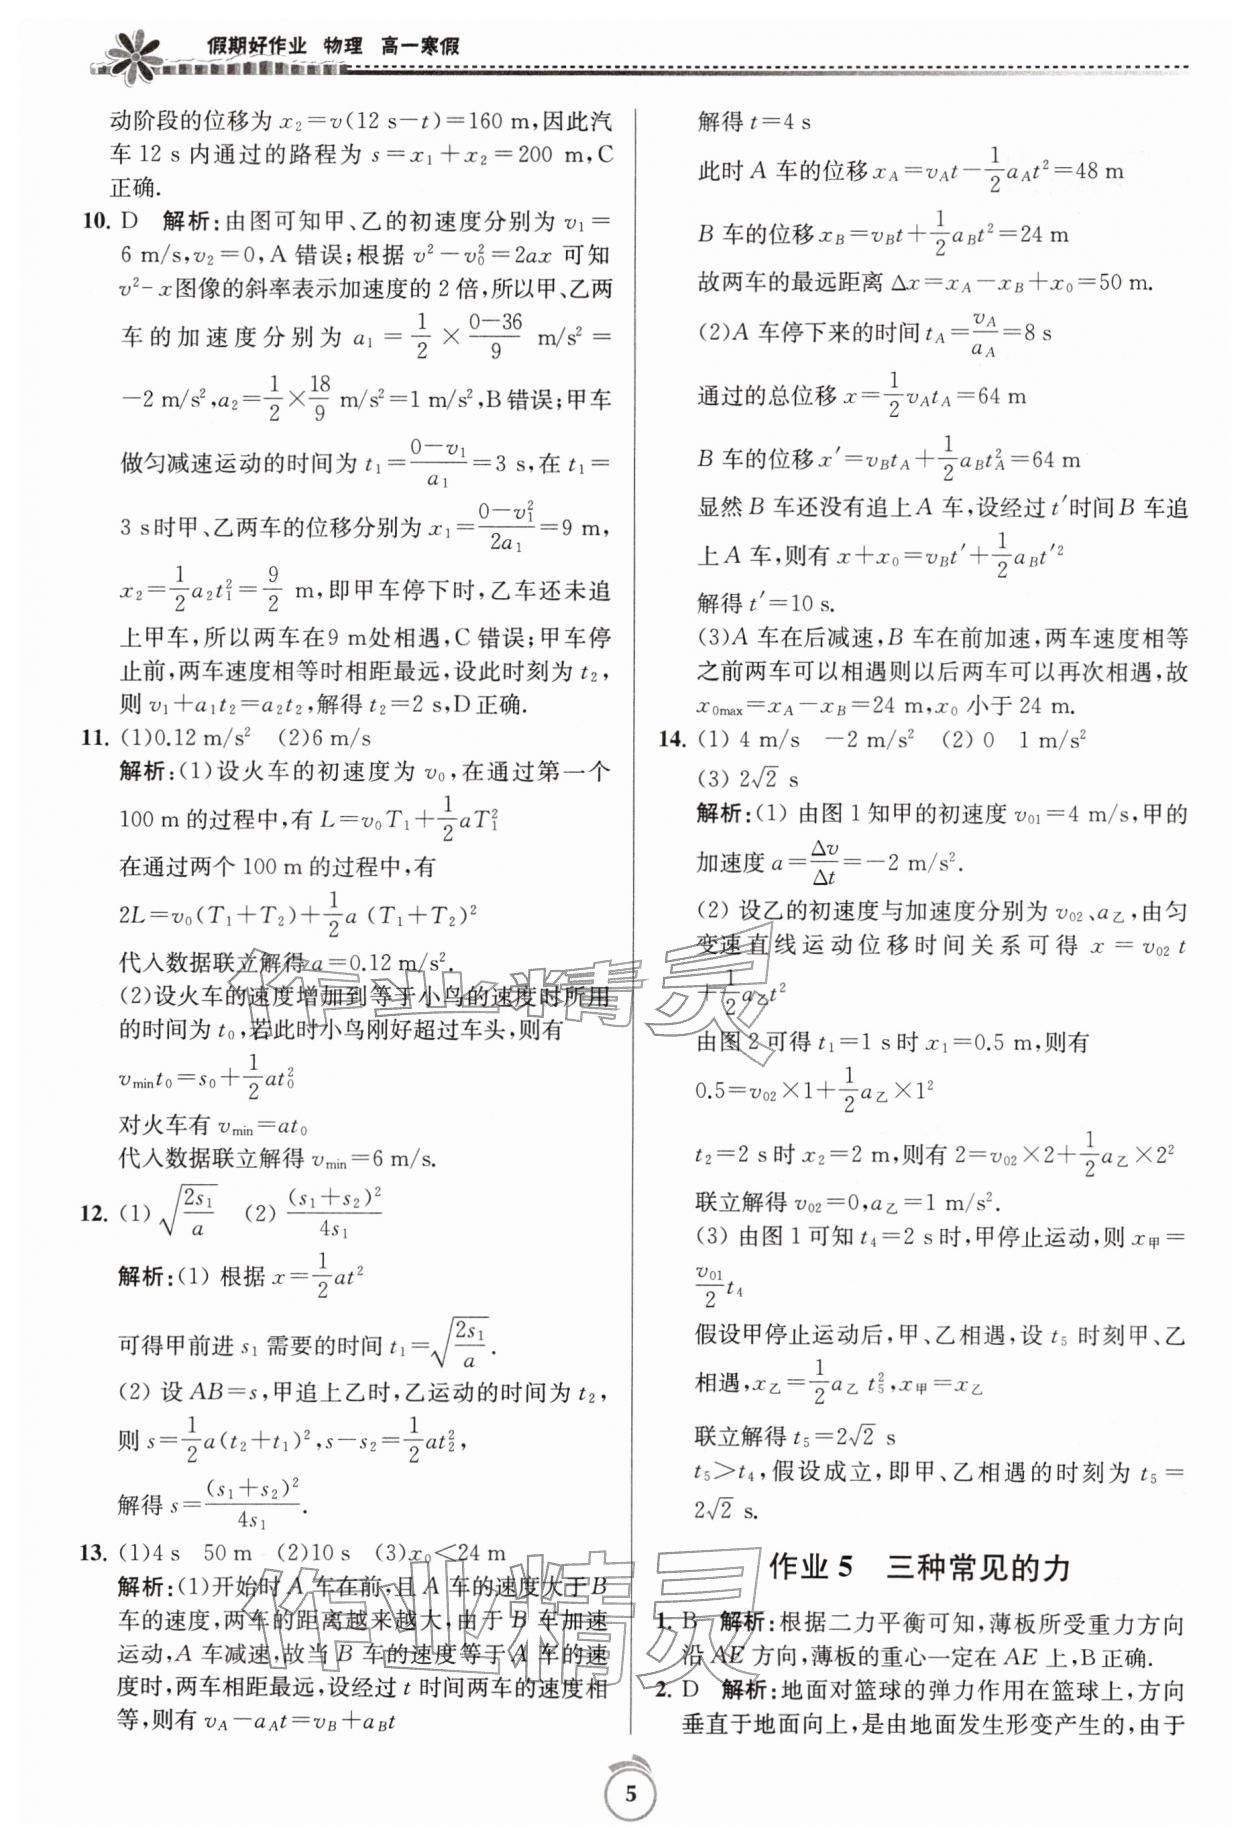 假期好作业 物理 高一寒假
动阶段的位移为 x₂=v(12 s-t)=160 m,因此汽
车 12 s 内通过的路程为 s=x₁+x₂=200 m,C
正确.
10. D 解析:由图可知甲、乙的初速度分别为 v₁=
6 m/s,v₂=0,A 错误;根据 v²-v₀²=2ax 可知
v²-x图像的斜率表示加速度的 2 倍,所以甲、乙两
车的加速度分别为 a₁=1/2×(0-36)/9 m/s²=
-2 m/s²,a₂=1/2×18/9 m/s²=1 m/s²,B错误;甲车
做匀减速运动的时间为 t₁=(0-v₁)/a₁=3 s,在 t₁=
3 s时甲、乙两车的位移分别为 x₁=(0-v₁²)/(2a₁)=9 m,
x₂=1/2a₂t₁²=9/2 m,即甲车停下时,乙车还未追
上甲车,所以两车在9 m处相遇,C 错误;甲车停
止前,两车速度相等时相距最远,设此时刻为 t₂,
则 v₁+a₁t₂=a₂t₂,解得 t₂=2 s,D正确.
11. (1)0.12 m/s² (2)6 m/s
解析:(1)设火车的初速度为 v₀,在通过第一个
100 m的过程中,有 L=v₀T₁+1/2aT₁²
在通过两个 100 m 的过程中,有
2L=v₀(T₁+T₂)+1/2a (T₁+T₂)²
代入数据联立解得 a=0.12 m/s².
(2)设火车的速度增加到等于小鸟的速度时所用
的时间为 t₀,若此时小鸟刚好超过车头,则有
v_min t₀=s₀+1/2at₀²
对火车有 v_min=at₀
代入数据联立解得 v_min=6 m/s.
12. (1) √(2s₁/a) (2) (s₁+s₂)²/(4s₁)
解析:(1) 根据 x=1/2at²
可得甲前进 s₁ 需要的时间 t₁=√(2s₁/a).
(2) 设 AB=s,甲追上乙时,乙运动的时间为 t₂,
则 s=1/2a(t₂+t₁)²,s-s₂=1/2at₂²,
解得 s=(s₁+s₂)²/(4s₁).
13. (1)4 s 50 m (2)10 s (3)x₀<24 m
解析:(1)开始时 A 车在前,且 A 车的速度大于B
车的速度,两车的距离越来越大,由于 B 车加速
运动,A 车减速,故当 B 车的速度等于 A 车的速
度时,两车相距最远,设经过 t 时间两车的速度相
等,则有 v_A-a_At=v_B+a_Bt
解得 t=4 s
此时 A 车的位移 x_A=v_At-1/2a_At²=48 m
B 车的位移 x_B=v_Bt+1/2a_Bt²=24 m
故两车的最远距离 Δx=x_A-x_B+x₀=50 m.
(2)A 车停下来的时间 t_A=v_A/a_A=8 s
通过的总位移 x=1/2v_At_A=64 m
B 车的位移 x′=v_Bt_A+1/2a_Bt_A²=64 m
显然 B 车还没有追上 A 车,设经过 t′时间 B 车追
上 A 车,则有 x+x₀=v_Bt′+1/2a_Bt′²
解得 t′=10 s.
(3)A 车在后减速,B 车在前加速,两车速度相等
之前两车可以相遇则以后两车可以再次相遇,故
x_0max=x_A-x_B=24 m,x₀ 小于 24 m.
14. (1) 4 m/s -2 m/s² (2) 0 1 m/s²
(3) 2√2 s
解析:(1) 由图 1 知甲的初速度 v₀₁=4 m/s,甲的
加速度 a=Δv/Δt=-2 m/s².
(2) 设乙的初速度与加速度分别为 v₀₂、a乙,由匀
变速直线运动位移时间关系可得 x=v₀₂ t
+1/2a乙t²
由图 2 可得 t₁=1 s时 x₁=0.5 m,则有
0.5=v₀₂×1+1/2a乙×1²
t₂=2 s时 x₂=2 m,则有 2=v₀₂×2+1/2a乙×2²
联立解得 v₀₂=0,a乙=1 m/s².
(3) 由图 1 可知 t₄=2 s时,甲停止运动,则 x甲=
v₀₁/2 t₄
假设甲停止运动后,甲、乙相遇,设 t₅ 时刻甲、乙
相遇,x乙=1/2a乙 t₅²,x甲=x乙
联立解得 t₅=2√2 s
t₅>t₄,假设成立,即甲、乙相遇的时刻为 t₅=
2√2 s.
作业 5 三种常见的力
1. B 解析:根据二力平衡可知,薄板所受重力方向
沿 AE 方向,薄板的重心一定在 AE 上,B正确.
2. D 解析:地面对篮球的弹力作用在篮球上,方向
垂直于地面向上,是由地面发生形变产生的,由于
作业精灵
作业精灵
5